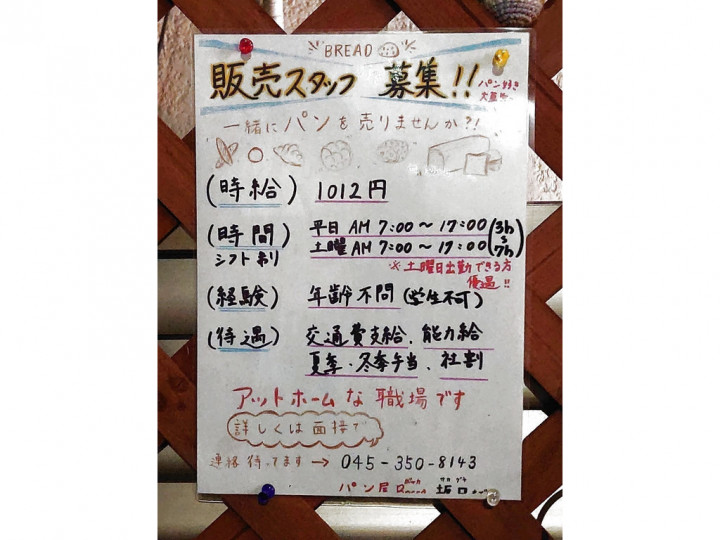 BREAD
販売スタッフ 募集!!
パン好き
大募集
一緒にパンを売りませんか?!
(時給) 1012円
(時間) 平日 AM 7:00〜17:00 (3h
シフト制 土曜 AM 7:00〜17:00 7h)
※土曜日出勤できる方
優遇!!
(経験) 年齢不問(学生不可)
(待遇) 交通費支給、能力給
夏季・冬季手当、社割
アットホームな職場です
詳しくは面接で
連絡待ってます → 045-350-8143
パン屋 坂口